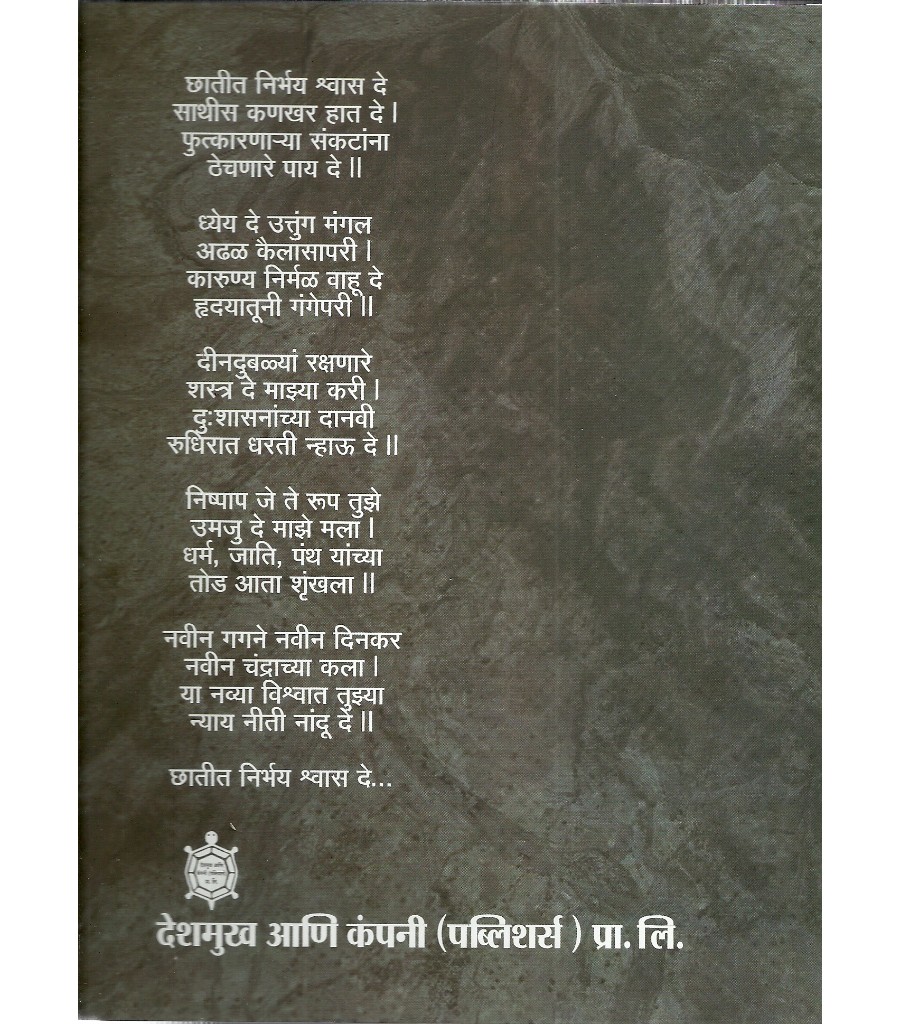 छातीत निर्भय श्वास दे
साथीस कणखर हात दे ।
फुत्कारणाऱ्या संकटांना
ठेचणारे पाय दे ॥
ध्येय दे उत्तुंग मंगल
अढळ कैलासापरी ।
कारुण्य निर्मळ वाहू दे
हृदयातूनी गंगेपरी ॥
दीनदुबळ्यां रक्षणारे
शस्त्र दे माझ्या करी ।
दुःशासनांच्या दानवी
रुधिरात धरती न्हाऊ दे ॥
निष्पाप जे ते रूप तुझे
उमजु दे माझे मला ।
धर्म, जाति, पंथ यांच्या
तोड आता शृंखला ॥
नवीन गगने नवीन दिनकर
नवीन चंद्राच्या कला ।
या नव्या विश्वात तुझ्या
न्याय नीती नांदू दे ॥
छातीत निर्भय श्वास दे...
देशमुख आणि
कंपनी (पब्लिशर्स)
प्रा. लि.
देशमुख आणि कंपनी (पब्लिशर्स ) प्रा. लि.